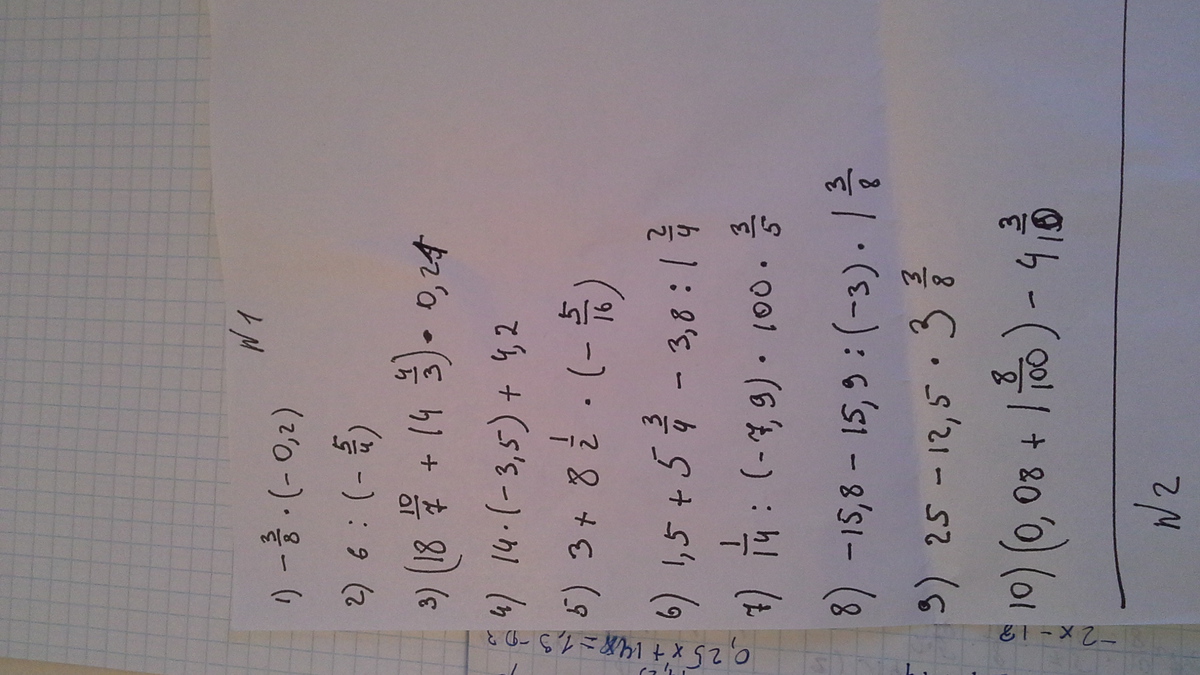 N1
1) -3/8 · (-0,2)
2) 6 : (-5/4)
3) (18 10/7 + 14 4/3) · 0,21
4) 14 · (-3,5) + 4,2
5) 3 + 8 1/2 · (-5/16)
6) 1,5 + 5 3/4 - 3,8 : 1 2/4
7) 1/14 : (-7,9) · 100 · 3/5
8) -15,8 - 15,9 : (-3) · 1 3/8
9) 25 - 12,5 · 3 3/8
10) (0,08 + 1 8/100) - 4 3/10
N2
-2x-18